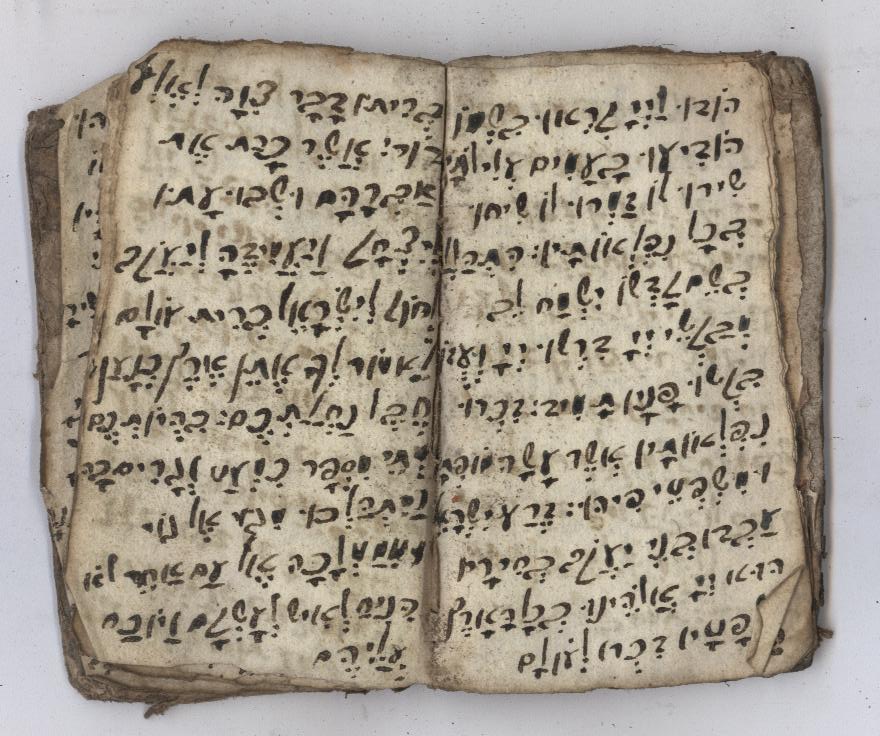 הודו לייי קראו בשמו
הודיעו בעמים עלילותיו
שירו לו זמרו לו שיחו
בכל נפלאותיו: התהללו
בשם קדשו ישמח לב
מבקשי ייי דרשו ייי ועוזו
בקשו פניו תמיד: זכרו
נפלאותיו אשר עשה מופתיו
ומשפטי פיהו: זרע ישראל
עבדו בני יעקב בחיריו
הוא ייי אלהינו בכל הארץ
משפטיו זכרו לעולם
בריתו דבר צוה לאלף
דור: אשר כרת את
אברהם ושבועתו
ליצחק ויעמידה ליעקב
לחוק לישראל ברית עולם
לאמור לך אתן ארץ כנען
חבל נחלתכם: בהיותכם
מתי מספר כמעט וגרים בה
ויתהלכו מגוי אל גוי
וממלכה אל עם אחר לא
הניח לאיש לעשקם ויוכח
עליהם